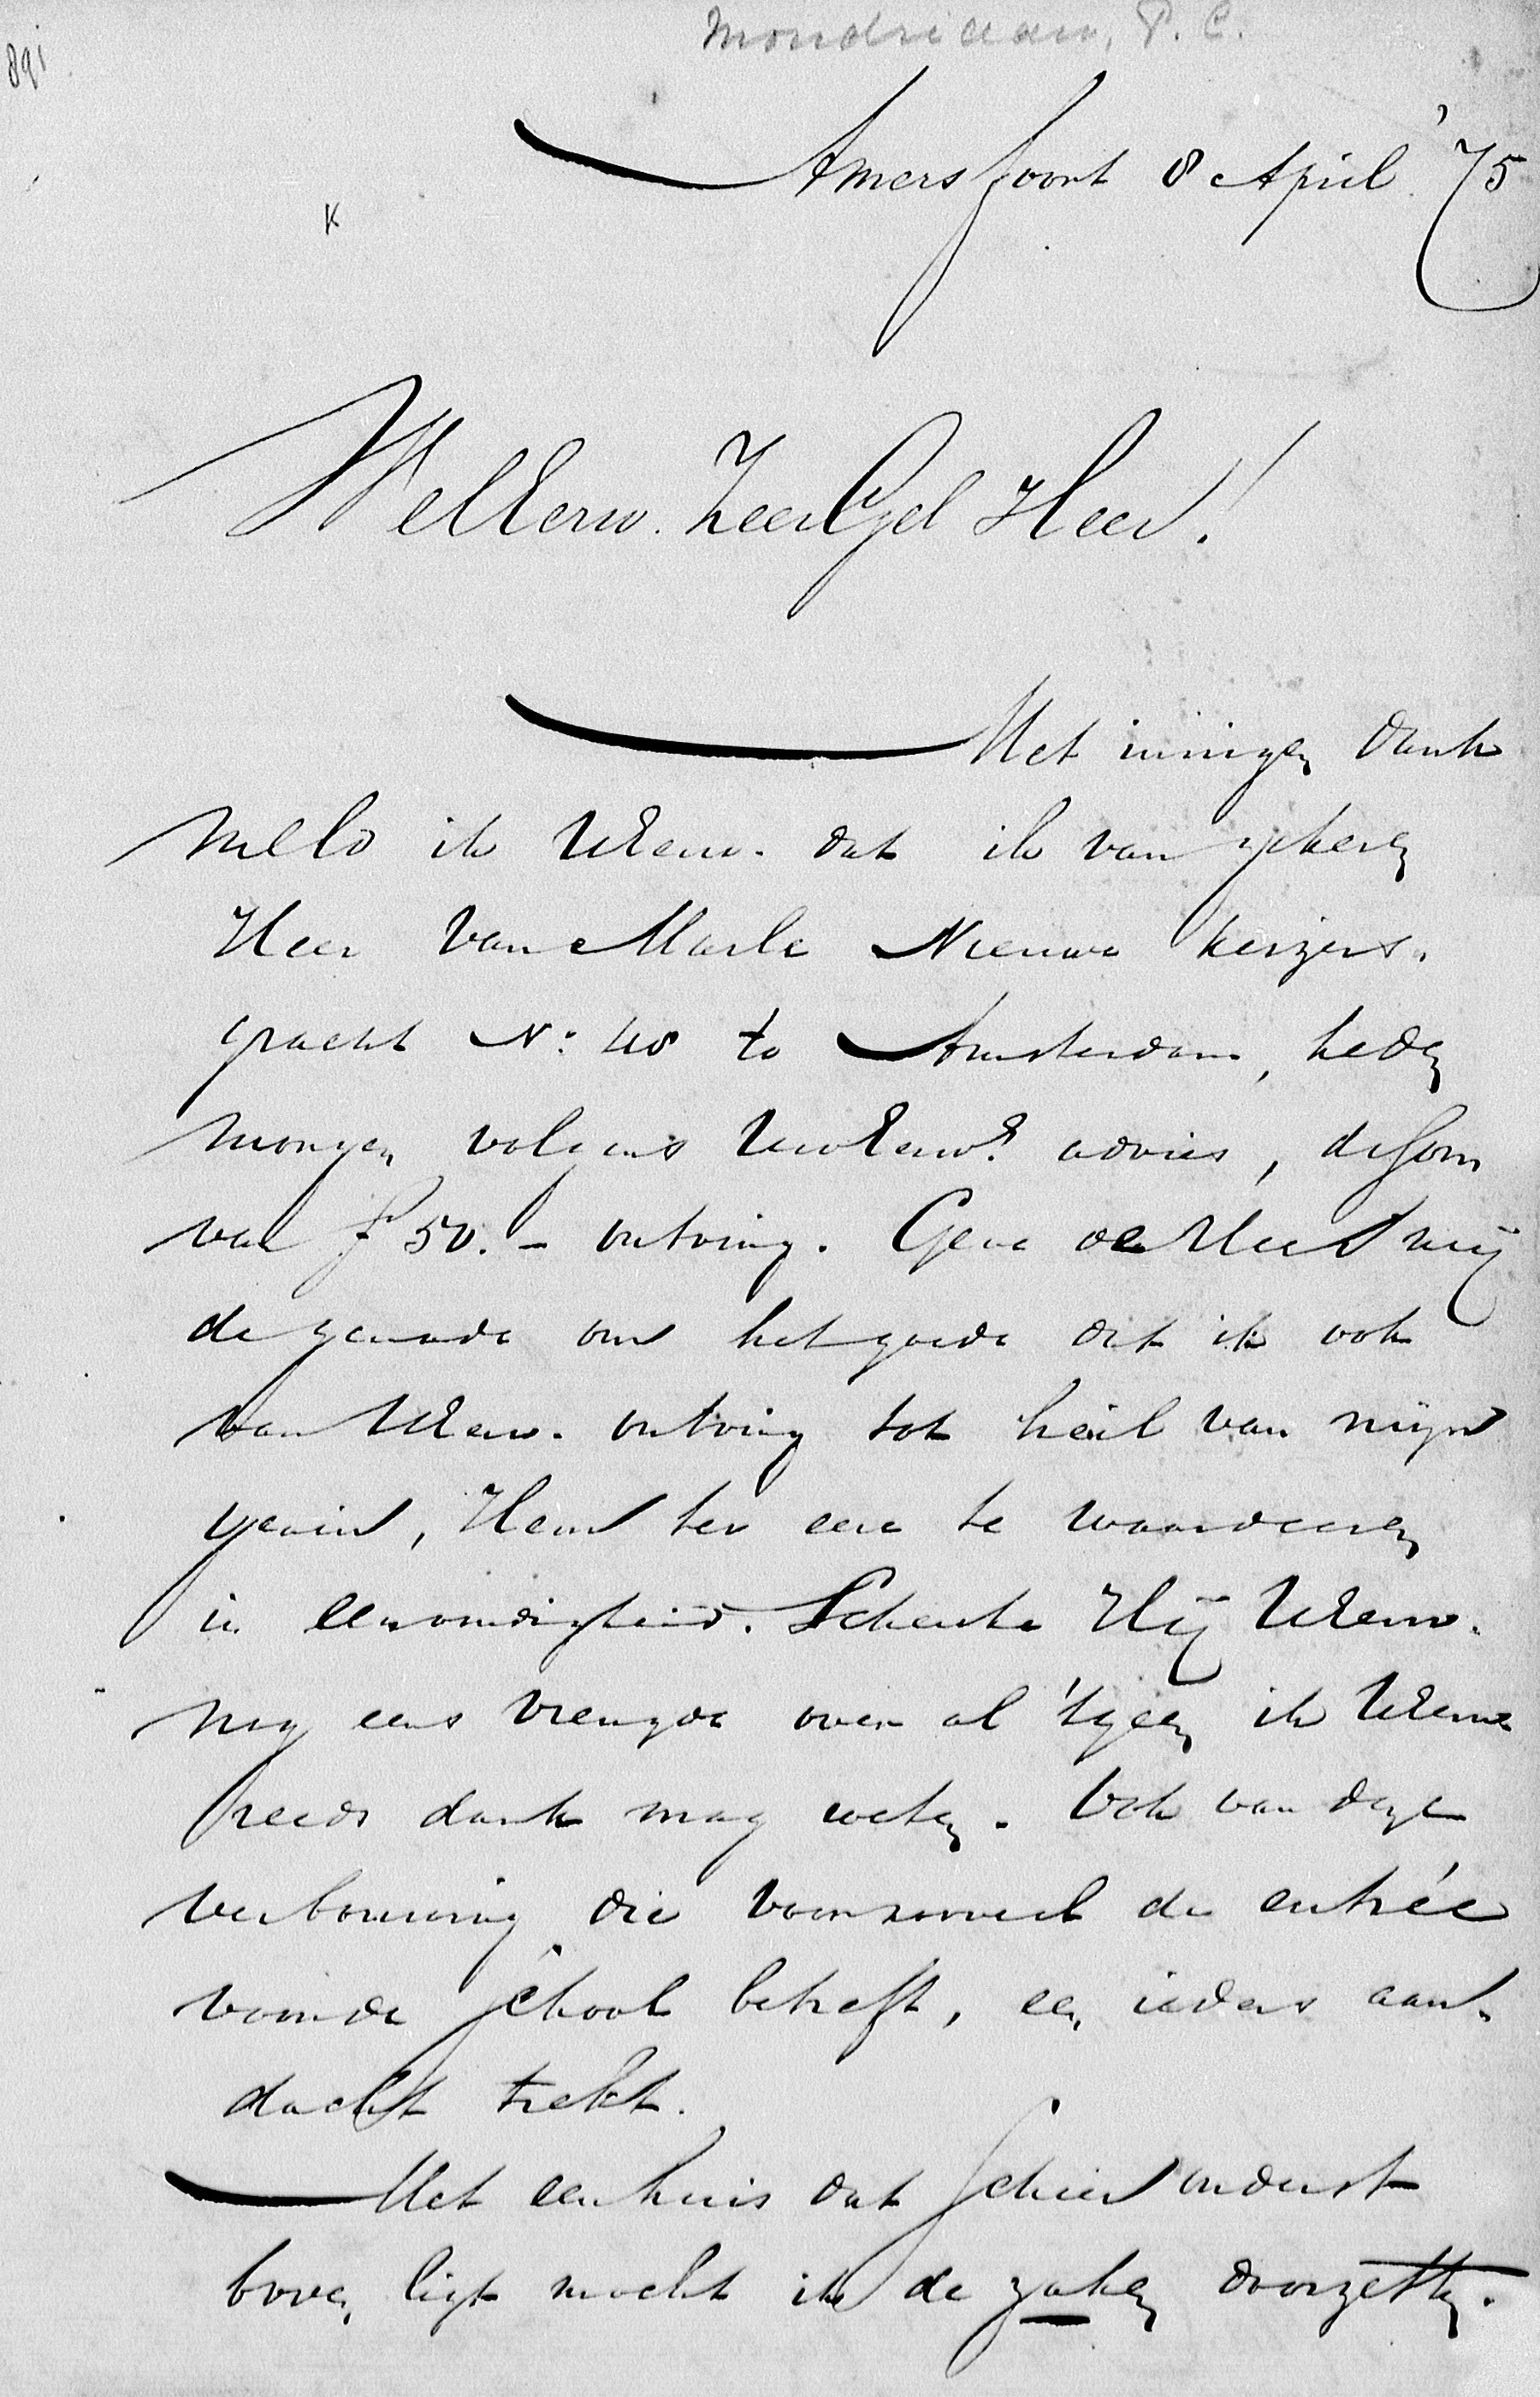 Mondriaan, P. C.
891
Amersfoort 8 April '75
K
WelEerw. ZeerGel Heer!
Met innigen dank
meld ik UEerw. dat ik van zekeren
Heer van Marle Nieuwe Keizers-
gracht No: 48 te Amsterdam, heden
morgen volgens UwEerws advies, de som
van f 50.- ontving. Geve de Heer mij
de genade om het goede dat ik ook
van UEerw. ontving tot heil van mijn
gezin, Hem ter eere te waardeeren
in eenvoudigheid. Schenke Hij UEerw.
nog eens vreugde over al 'tgeen ik UEerw
reeds dank mag weten. Ook van deze
verbouwing die voornamelik de entrée
voor de school betreft, en ieders aan-
dacht trekt.
Met een huis dat schier onderst
boven ligt mocht ik de zaken doorzetten.